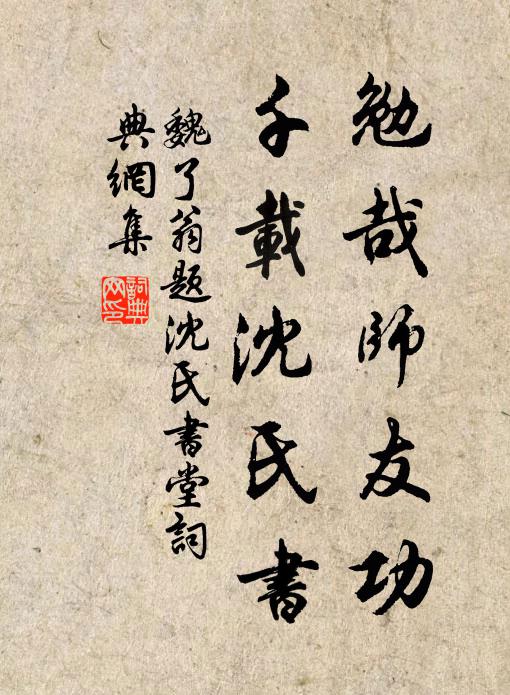 勉哉師友功
千載沈氏書
魏了翁題沈氏書堂詞
典網集
詞典
网印